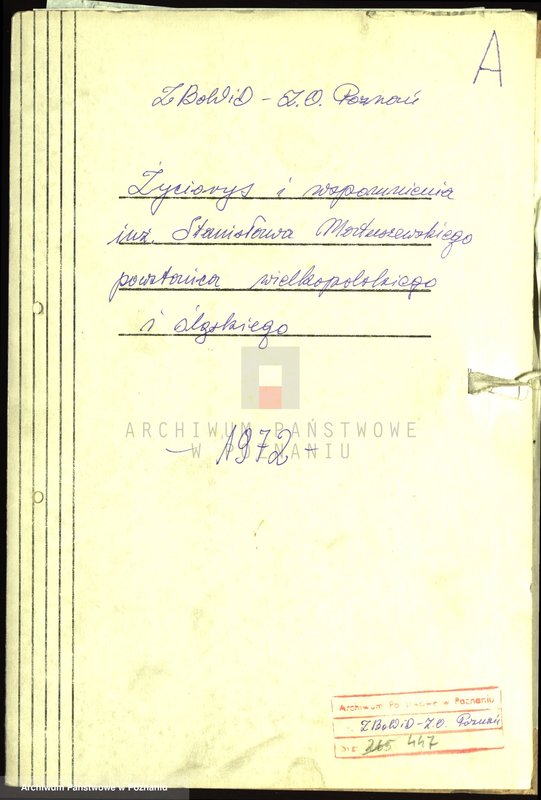 A
ZBoWiD - Z.O. Poznań
Życiorys i wspomnienia
inż. Stanisława Martuszewskiego
powstańca wielkopolskiego
i śląskiego
ARCHIWUM PAŃSTWOWE
W POZNANIU
- 1972 -
Archiwum Państwowe w Poznaniu
ZBoWiD-ZO Poznań
265 447
Archiwum Państwowe w Poznaniu